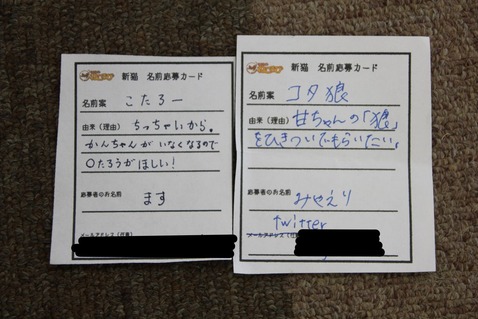 新猫 名前応募カード
名前案 こたろー
由来(理由) ちっちゃいから。
かんちゃんがいなくなるので
〇たろうがほしい!
応募者のお名前
ます
メールアドレス(任意)
新猫 名前応募カード
名前案 コタ狼
由来(理由) 甘ちゃんの「狼」
をひきついでもらいたい。
応募者のお名前
みやえり
twitter
メールアドレス(任意)